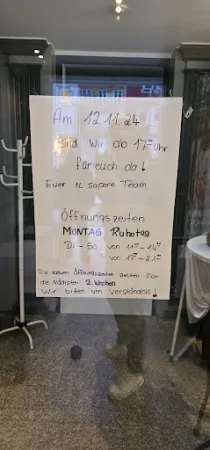 Am 12.11.24
sind wir ab 17⁰⁰ Uhr
für euch da!
Euer IL sapore Team
Öffnungszeiten
MONTAG Ruhetag
Di - So. von 11³⁰ - 14³⁰
von 17⁰⁰ - 21³⁰
Die neuen Öffnungszeiten gelten für
die nächsten 2. Wochen
Wir bitten um Verständnis!